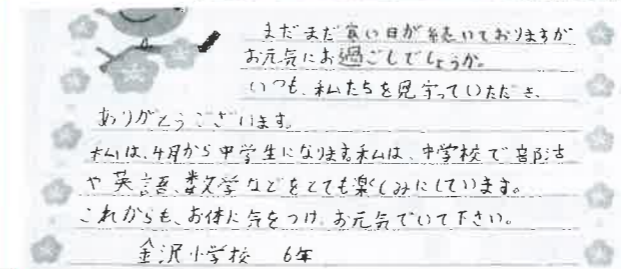 まだまだ寒い日が続いておりますが
お元気にお過ごしでしょうか。
いつも、私たちを見守っていただき、
ありがとうございます。
私は、4月から中学生になります。私は、中学校で部活
や英語、数学などをとても楽しみにしています。
これからも、お体に気をつけ、お元気でいて下さい。
金沢小学校 6年